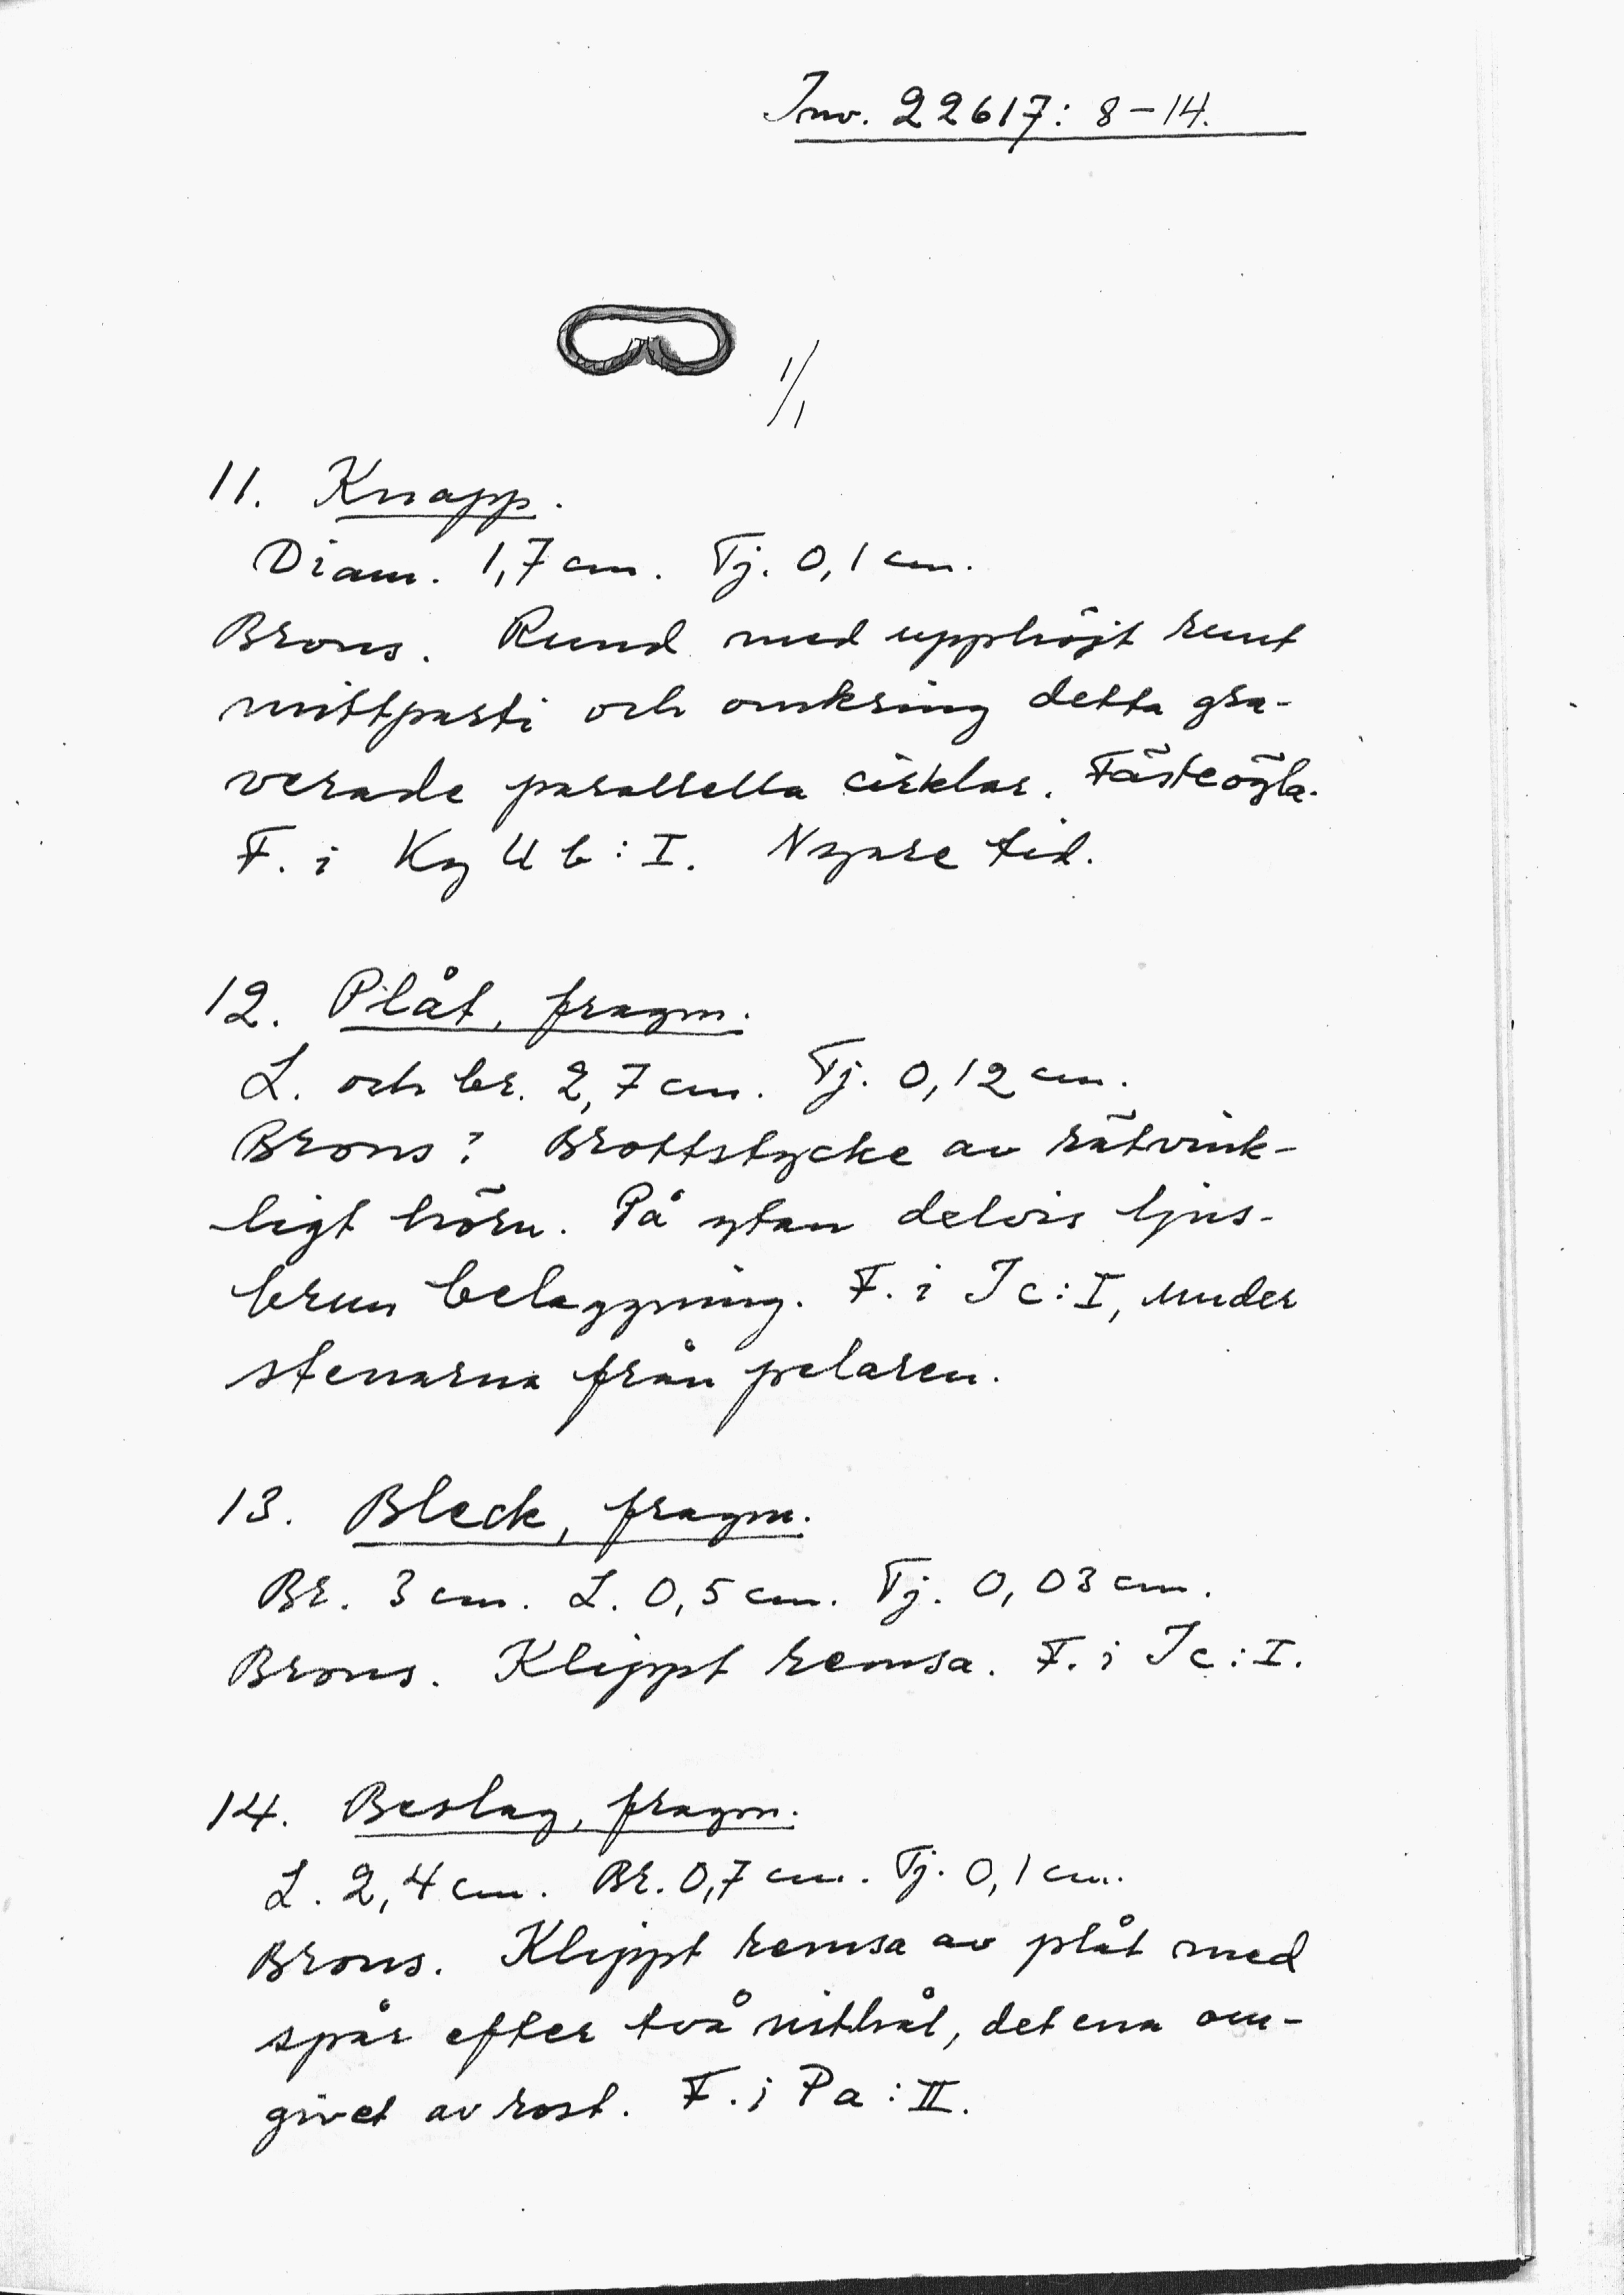 Inv. 22617: 8-14.
1/1
11. Knapp.
Diam. 1,7 cm. Tj. 0,1 cm.
Brons. Rund med upphöjt runt
mittparti och omkring detta gra-
verade parallella cirklar. Fästeögla.
F. i Kg U b : I. Nyare tid.
12. Plåt, fragm.
L. och br. 2,7 cm. Tj. 0,12 cm.
Brons? Brottstycke av rätvink-
ligt hörn. På ytan delvis ljus-
brun beläggning. F. i Ic : I, under
stenarna från pelaren.
13. Bleck, fragm.
Br. 3 cm. L. 0,5 cm. Tj. 0,03 cm.
Brons. Klippt remsa. F. i Ic : I.
14. Beslag, fragm.
L. 2,4 cm. Br. 0,7 cm. Tj. 0,1 cm.
Brons. Klippt remsa av plåt med
spår efter två nithål, det ena om-
givet av rost. F. i Pa : II.